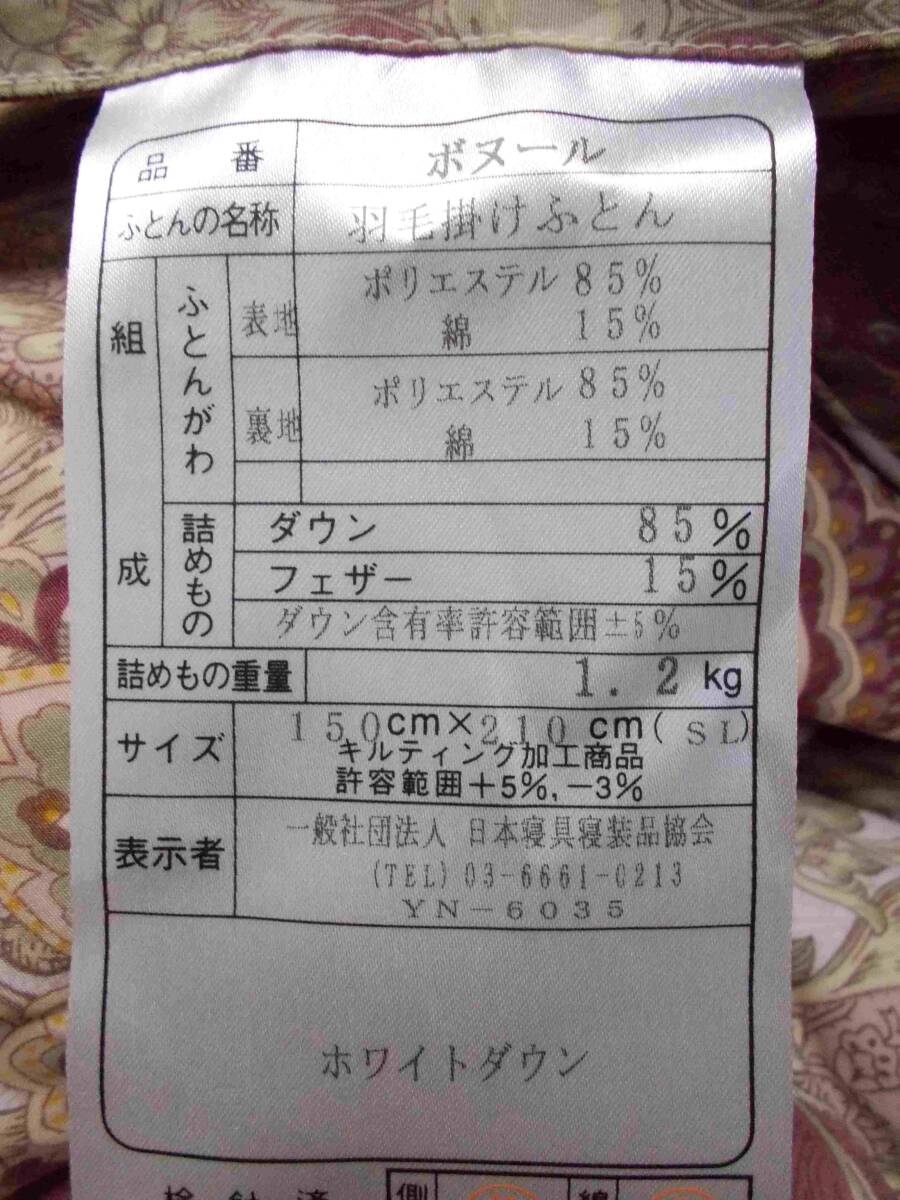 品番 ボヌール
ふとんの名称 羽毛掛けふとん
組成 ふとんがわ 表地 ポリエステル 85%
綿 15%
裏地 ポリエステル 85%
綿 15%
詰めもの ダウン 85%
フェザー 15%
ダウン含有率許容範囲±5%
詰めもの重量 1.2kg
サイズ 150cm×210cm(SL)
キルティング加工商品
許容範囲+5%,-3%
表示者 一般社団法人 日本寝具寝装品協会
(TEL)03-6661-0213
YN-6035
ホワイトダウン
検針済 側 綿